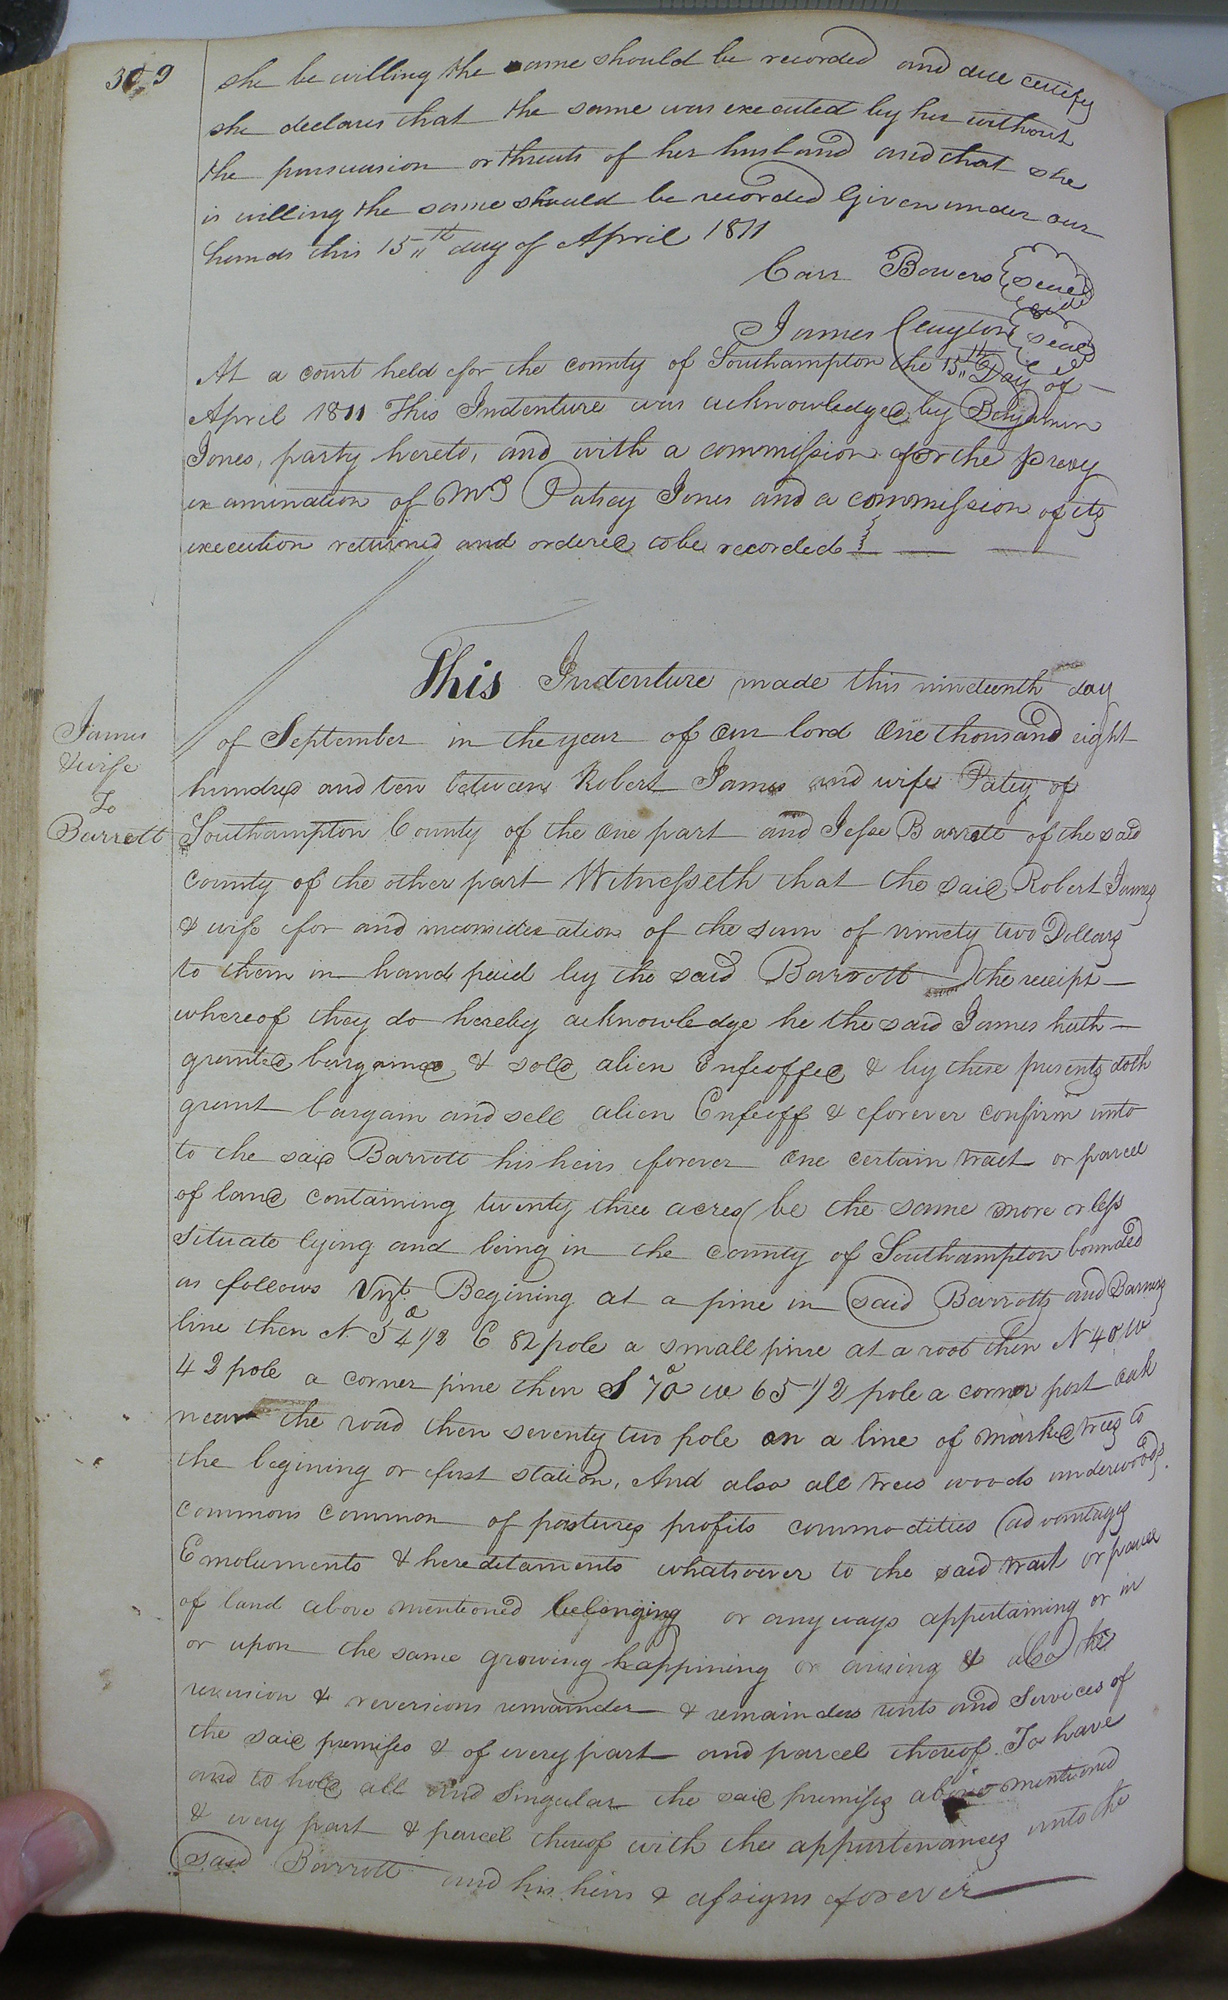 309
she be willing the same should be recorded and due certify
she declares that the same was executed by her without
the pursuasion or threats of her husband and that she
is willing the same should be recorded Given under our
hands this 15th day of April 1811
Carr Bowers seal
James Clayton seal
At a court held for the county of Southampton the 15th Day of
April 1811 This Indenture was acknowledged by Benjamin
Jones, party hereto, and with a commission for the privy
examination of Mrs Patsey Jones and a commission of its
execution returned and ordered to be recorded
James
& wife
To
Barrett
This Indenture made this nineteenth day
of September in the year of our lord One thousand eight
hundred and ten between Robert James and wife Patey of
Southampton County of the One part and Jesse Barrett of the said
County of the other part Witnesseth that the said Robert James
& wife for and inconsideration of the sum of ninety two Dollars
to them in hand paid by the said Barrott the receipt
whereof they do hereby acknowledge he the said James hath
granted bargained & sold alien Enfeoffed & by these presents doth
grant bargain and sell alien Enfeoff & forever confirm unto
to the said Barrott his heirs forever One certain tract or parcel
of land containing twenty three acres (be the same more or less
situate lying and being in the County of Southampton bounded
as follows Vizt Begining at a pine in said Barrotts and Barnes
line then N 54° 1/2 E 82 pole a small pine at a root then N 40 W
42 pole a corner pine then S 70° W 65 1/2 pole a corner post oak
near the road then seventy two pole on a line of marked trees to
the begining or first station, And also all trees woods underwoods.
Commons common of pastures profits commodities advantages
Emoluments & hereditaments whatsoever to the said tract or parcel
of land above mentioned belonging or any ways appertaining or in
or upon the same growing happining or arising & also the
revertion & reversions remainder & remainders rents and Services of
the said premises & of every part and parcel thereof. To have
and to hold all and Singular the said premises above mentioned
& every part & parcel thereof with the appurtenances unto the
said Barrott and his heirs & assigns forever